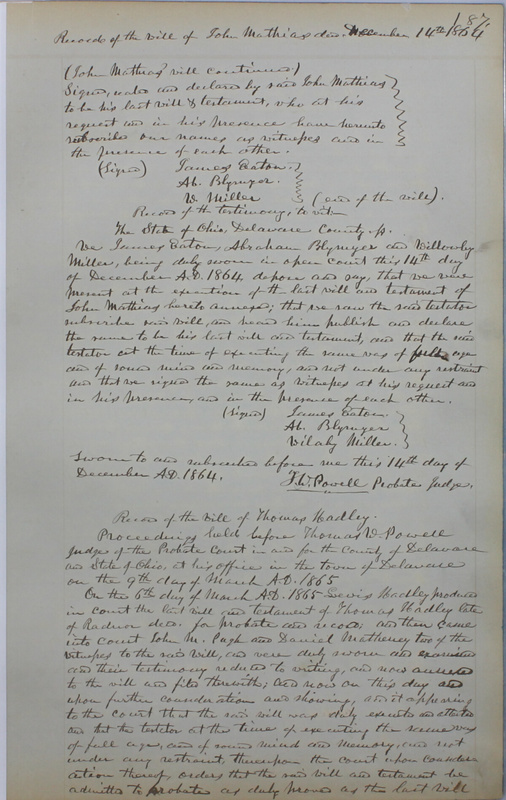 187.
Record of the will of John Mathias decd. December 14th 1864
(John Mathias' will continued)
Signed, sealed and declared by said John Mathias
to be his last will & testament, who at his
request and in his presence have hereunto
subscribed our names as witnesses and in
the presence of each other.
(Signed) James Eaton.
Ab. Blymyer.
W. Miller (end of the will).
Record of the testimony, to wit
The State of Ohio, Delaware County ss.
We James Eaton, Abraham Blymyer and Willowby
Miller, being duly sworn in open court this 14th day
of December A.D. 1864, depose and say, that we were
present at the execution of the last will and testament of
John Mathias hereto annexed; that we saw the said testator
subscribe said will, and heard him publish and declare
the same to be his last will and testament, and that the said
testator at the time of executing the same was of full age
and of sound mind and memory, and not under any restraint
and that we signed the same as witnesses at his request and
in his presence, and in the presence of each other.
(Signed) James Eaton.
Ab. Blymyer
Miller.
Sworn to and subscribed before me this 14th day of
December A.D. 1864. T.W. Powell Probate Judge.
Record of the will of Thomas Hadley.
Proceedings held before Thomas W. Powell
Judge of the Probate Court in and for the County of Delaware
and State of Ohio, at his office in the town of Delaware
on the 9th day of March A.D. 1865
On the 6th day of March A.D. 1865 Lewis Hadley produced
in court the last will and testament of Thomas Hadley late
of Radnor decd. for probate and record; and then came
into court John M. Pugh and Daniel Matheney two of the
witnesses to the said will, and were duly sworn and examined
and their testimony reduced to writing, and now annexed
to the will and filed therewith; and now on this day and
upon further consideration and showing, and it appearing
to the court that the said will was duly executed and attested
and that the testator at the time of executing the same was
of full age, and of sound mind and memory, and not
under any restraint, thereupon the court upon consider-
ation thereof, orders that the said will and testament be
admitted to probate as duly proved as the last will